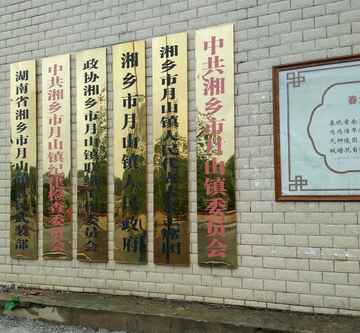 湖南省湘乡市月山镇人民武装部
中共湘乡市月山镇纪律检查委员会
政协湘乡市月山镇联络工作委员会
湘乡市月山镇人民政府
湘乡市月山镇人民代表大会主席团
中共湘乡市月山镇委员会
春